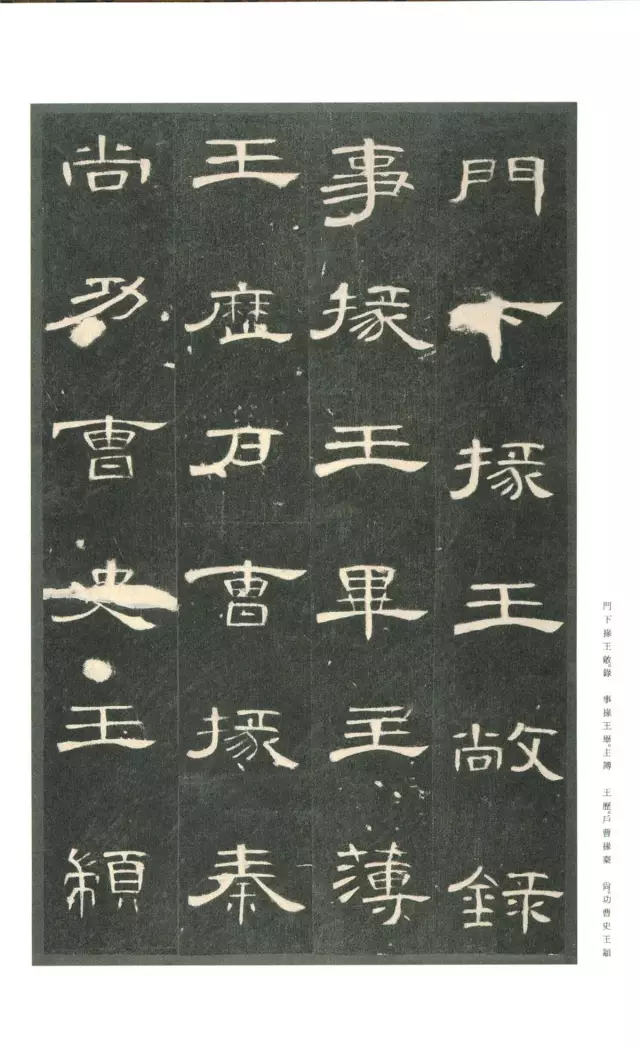 門下掾王敞錄
事掾王畢主薄
王歷戶曹掾秦
尚功曹史王顓
門下掾王敞。錄 事掾王畢。主簿 王歷。戶曹掾秦 尚。功曹史王顓